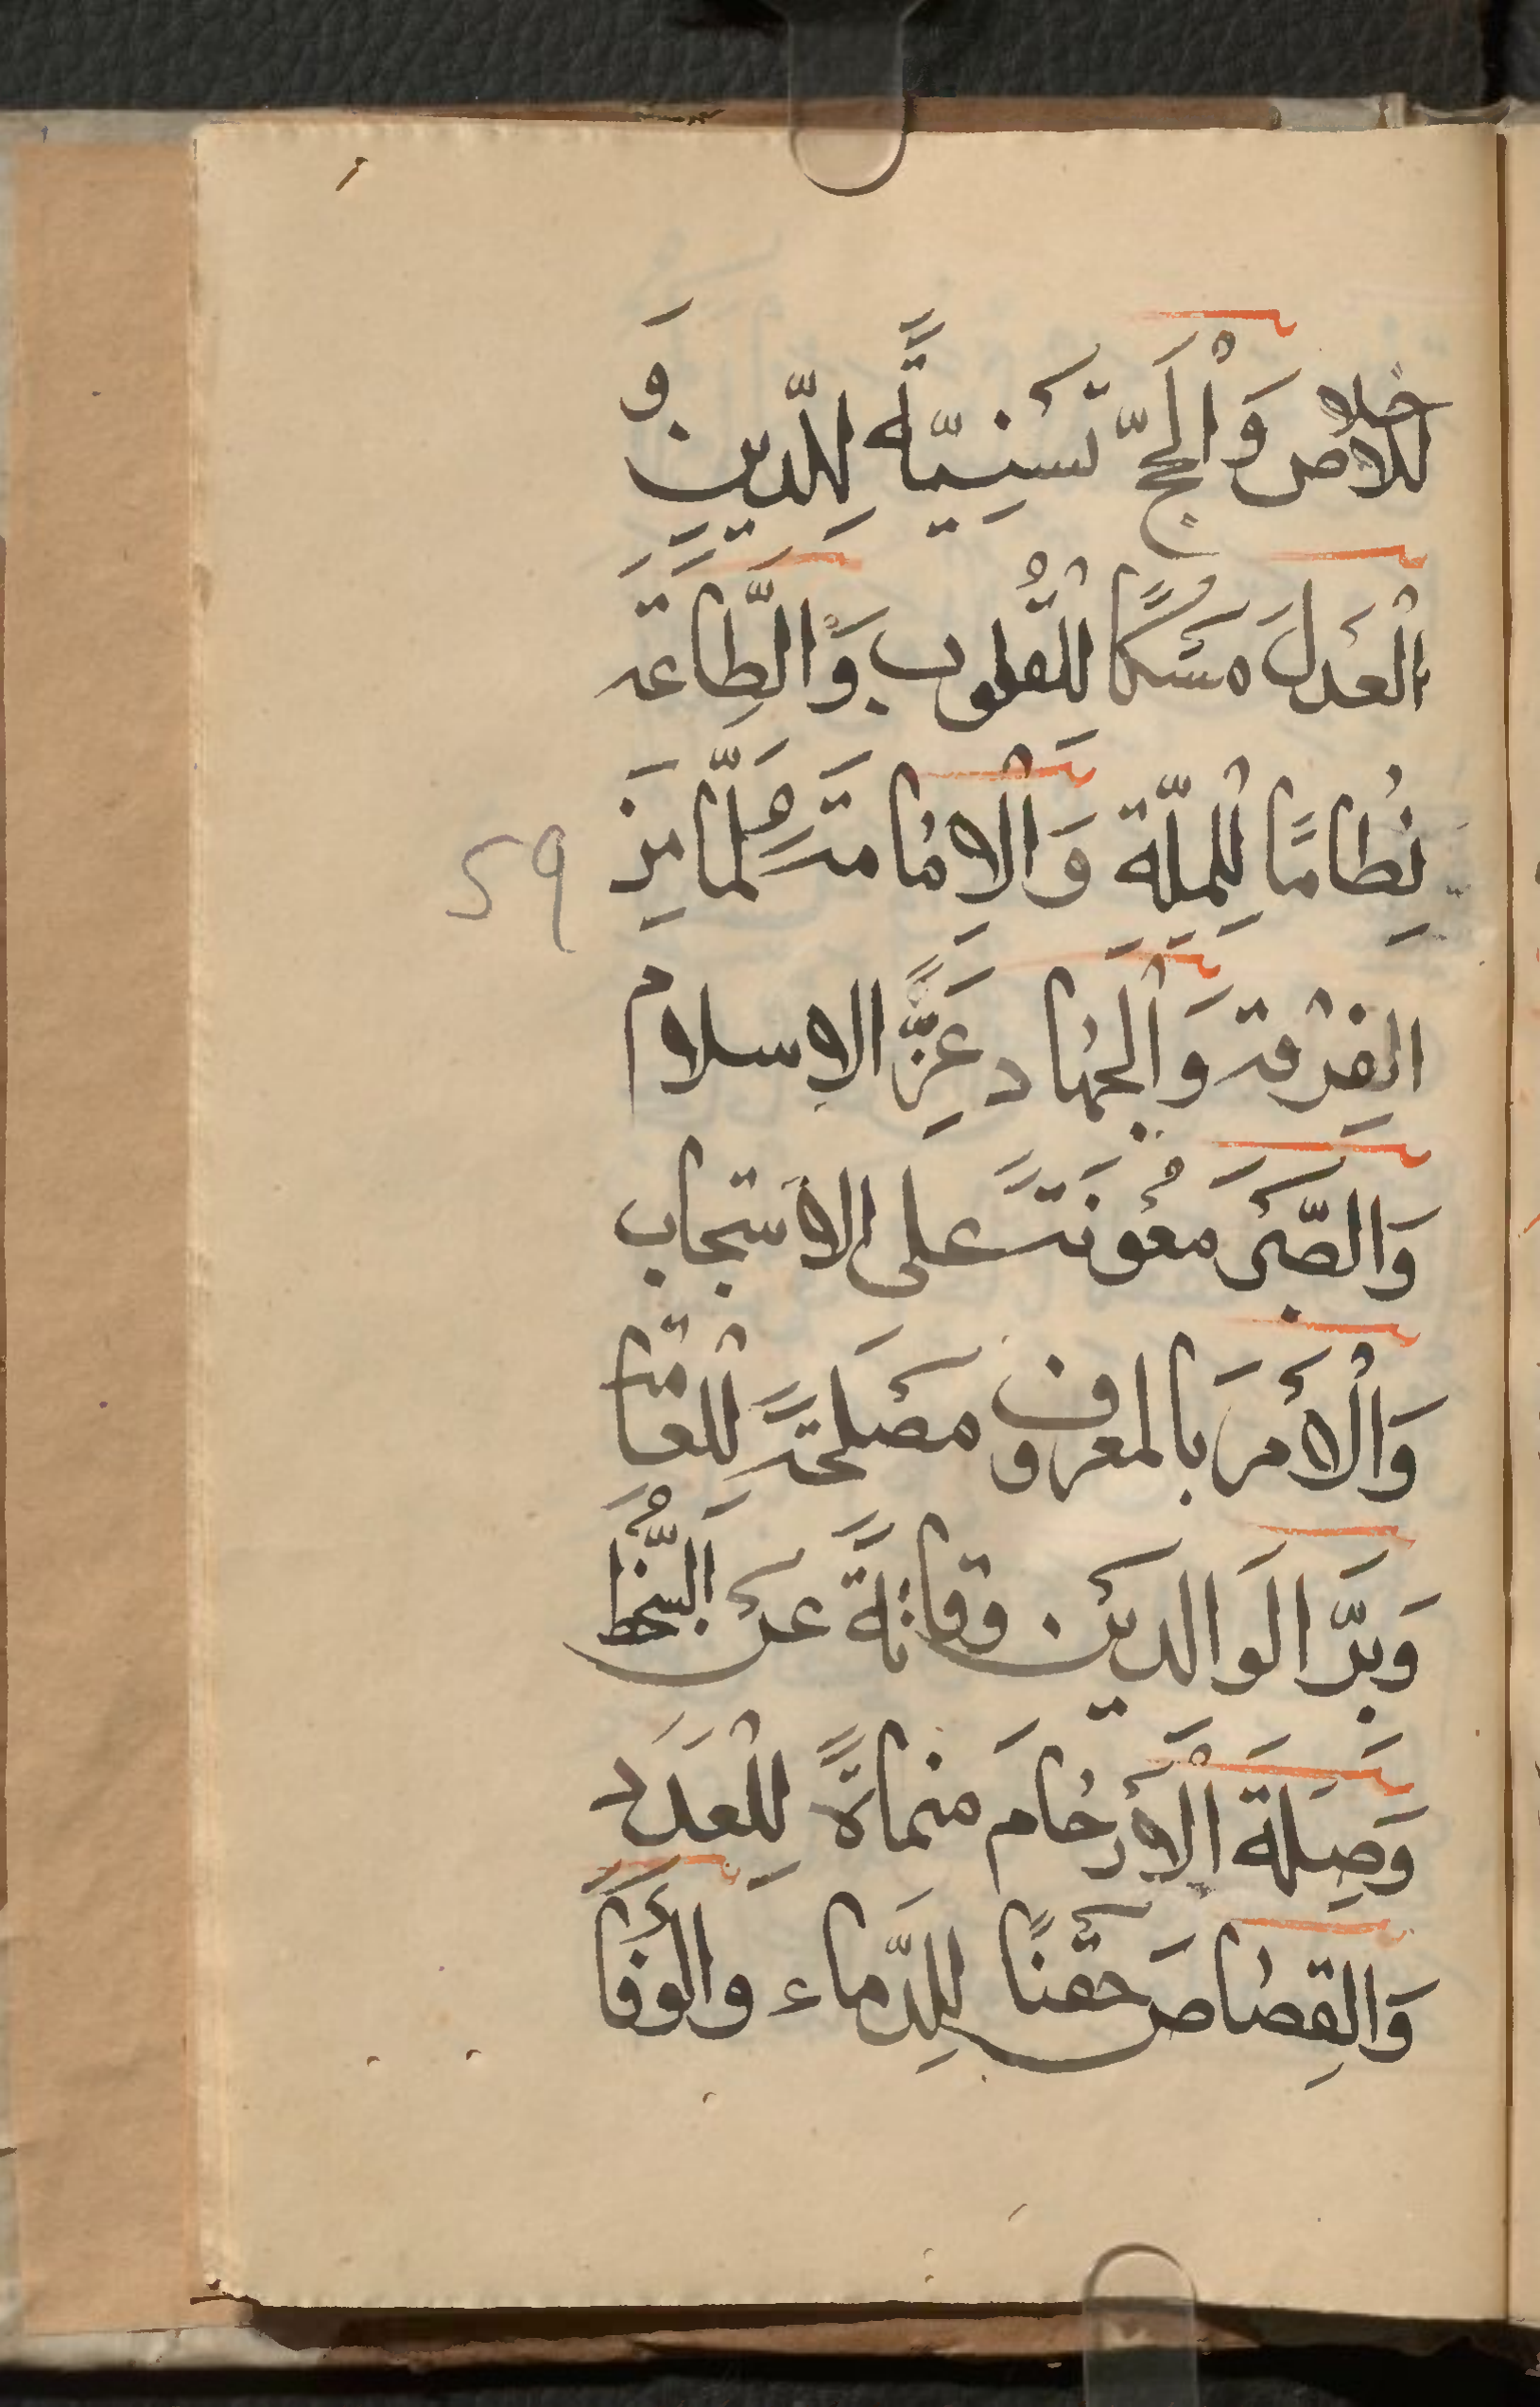 للاخلاص وَالْحَجّ تَسْنِيَّةً لِلّدينِ وَ
الْعَدْلَ مَسْكًا لْلقُلوب وَالطَّاعَةَ
نِظامًا لْلِمِلّةِ وَالْاِمٰامَةَ لَمًّا مِنَ
الفِرْقة وَالْجِهٰاد عَزًّ الاِسلام
وَالصّبْرَ معُونَتً على الاستجاب
وَالْأَمْرَ بالمعروف مَصْلحَةً لْلعٰامّة
وَبرَّ الَوالديْن وقايَةً عَنْ السُّخْط
وَصِلَةَ الْأَرْحٰامَ منماةً لِلْعَدَد
وَالقِصٰاصَ حَقْنًا لِلدَّماء والْوَفٰا
59